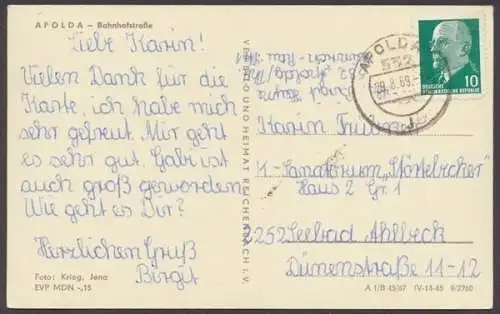 APOLDA – Bahnhofstraße
Liebe Karin!
Vielen Dank für die
Karte, ich habe mich
sehr gefreut. Mir geht
es sehr gut. Gabi ist
auch groß geworden.
Wie geht es Dir?
Herzlichen Gruß
Birgit
Foto: Krieg, Jena
EVP MDN -,15
VERLAG BILD UND HEIMAT REICHENBACH I. V.
Birgit
532 Apolda
APOLDA
532
29.8.69.
DEUTSCHE
DEMOKRATISCHE REPUBLIK
10
Karin
K.-Sanatorium „Störtebecker"
Haus 2 Gr. 1
2252 Seebad Ahlbeck
Dünenstraße 11-12
A 1/B 45/67 IV-14-45 9/2760